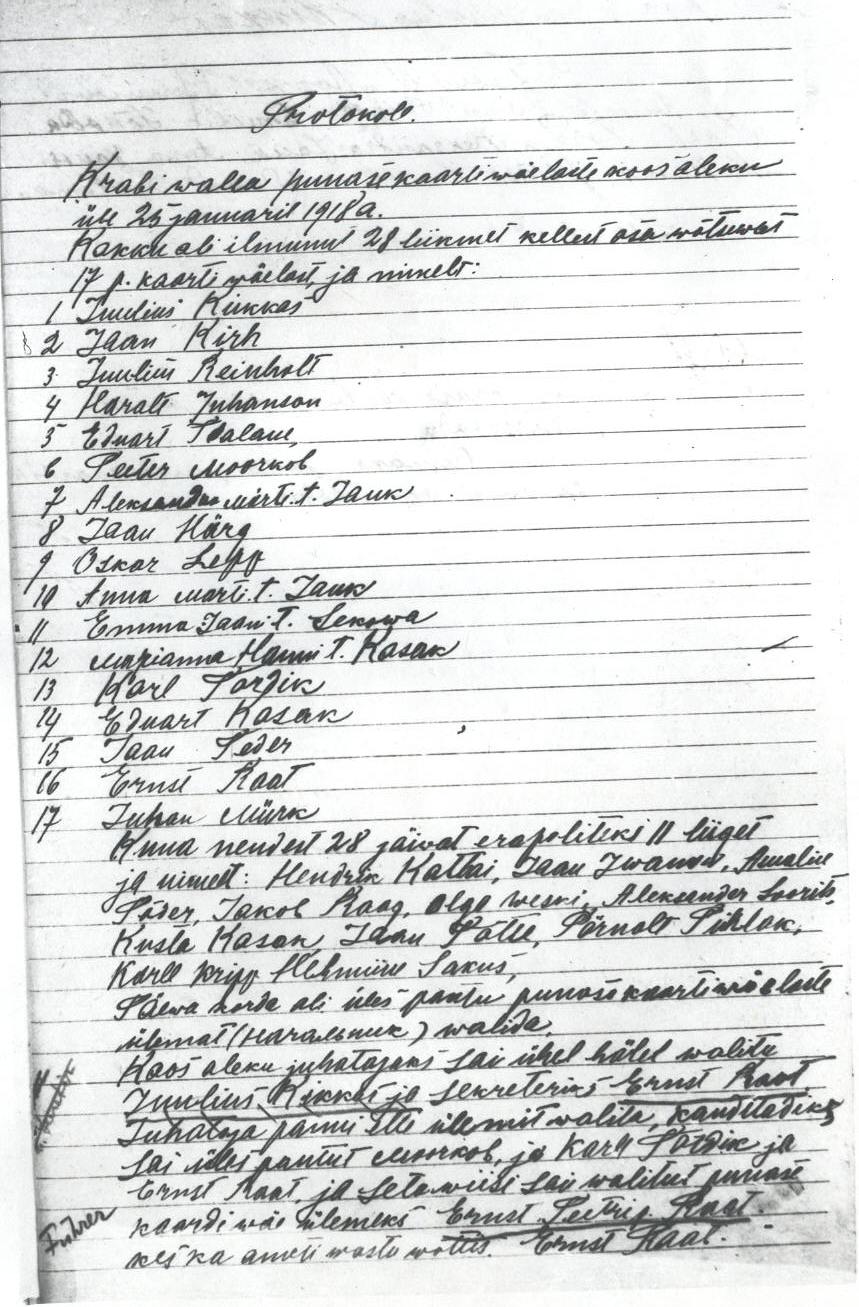 Protokoll.
Krabi walla punasekaarti wäelaste koosoleku
üle 25 januaril 1918 a.
Kokku oli ilmunut 28 liikmet kellest osa wõtiwat
17 p. kaarti wäelast, ja nimelt:
1 Juulius Kikkas
2 Jaan Kirh
3 Juulius Reinholt
4 Haralt Juhanson
5 Eduart
6 Peeter Moorkob
7 Aleksander Märti.t. Tauk
8 Jaan Härg
9 Oskar Lepp
10 Anna Märti.t. Tauk
11 Emma Jaani.t. Sekowa
12 Marianna Hannu t. Kasak
13 Karl Pordik
14 Eduart Kasak
15 Jaan Peder
16 Ernst Raat
17 Juhan Mürk
Kuna nendest 28 jäiwat erapoliteki 11 liiget
ja nimelt: Hendrik Kattai, Jaan Iwanow, Amalie
Söder, Jakob Raag, Olga Weski, Aleksander Soorits,
Kusta Kasak, Jaan Pärnolt Pihlak,
Karll Kripp Sakus,
Päewa korda oli üles pantu punasekaarti wäelaste
ülemat (начальник) walida.
Koos oleku juhatajaks sai ühel hälel walitu
Juulius Kikkas ja sekreteriks Ernst Raat
Juhataja panni ette ülemit walita, kanditadiks
sai üles pantut Moorkob, ja Karll Pordik ja
Ernst Raat, ja seta wiisi sai walitut punase
kaardi wäe ülemeks Ernst Raat.
Führer
kes ka ameti wasto wottis. Ernst Raat.